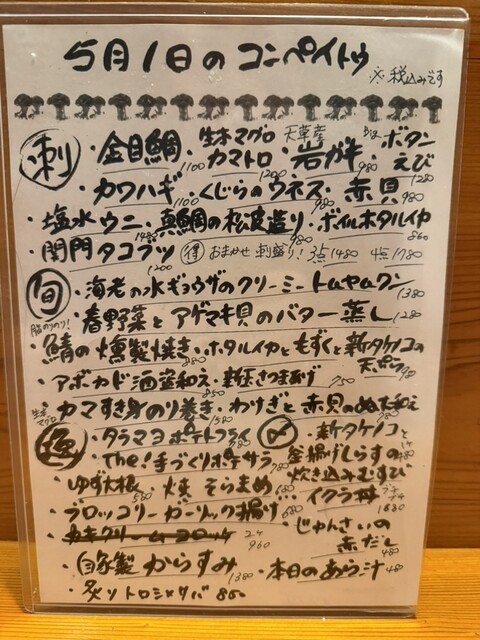 5月1日のコンペイトウ
※税込みです
刺 ・金目鯛 1100 ・生本マグロ カマトロ 1200 ・天草産 岩ガキ 980 ・ボタンえび 1280
・カワハギ 1100 ・くじらのウネス 980 ・赤貝 980
・塩水ウニ 1480 ・真鯛の松皮造り 980 ・ボイルホタルイカ 860
・関門タコブツ 1200 得 おまかせ刺盛り! 3点1480 4点1780
旬 ・海老の水ギョウザのクリーミートムヤムクン 1380
・春野菜とアゲマキ貝のバター蒸し 1280
脂のりのり!
・鯖の燻製焼き ・ホタルイカともずくと新タケノコの天ぷら
・アボカド酒盗和え 850 ・新玉さつまあげ 750
生本マグロ
・カマすき身のり巻き 1580 ・わけぎと赤貝のぬた和え 780
・タラマヨポテトフライ 〆 ・新タケノコと
・The!手づくりポテサラ 780 釜揚げしらすの
・ゆず大根 580 ・焼そらまめ 680 炊き込みむすび
・ブロッコリーガーリック揚げ 680 ・イクラ丼 プチプチ 1680
・カキクリームコロッケ 2ケ 960 ・じゅんさいの赤だし 480
・自家製からすみ 1380 ・本日のあら汁 480
・炙りトロシメサバ 860